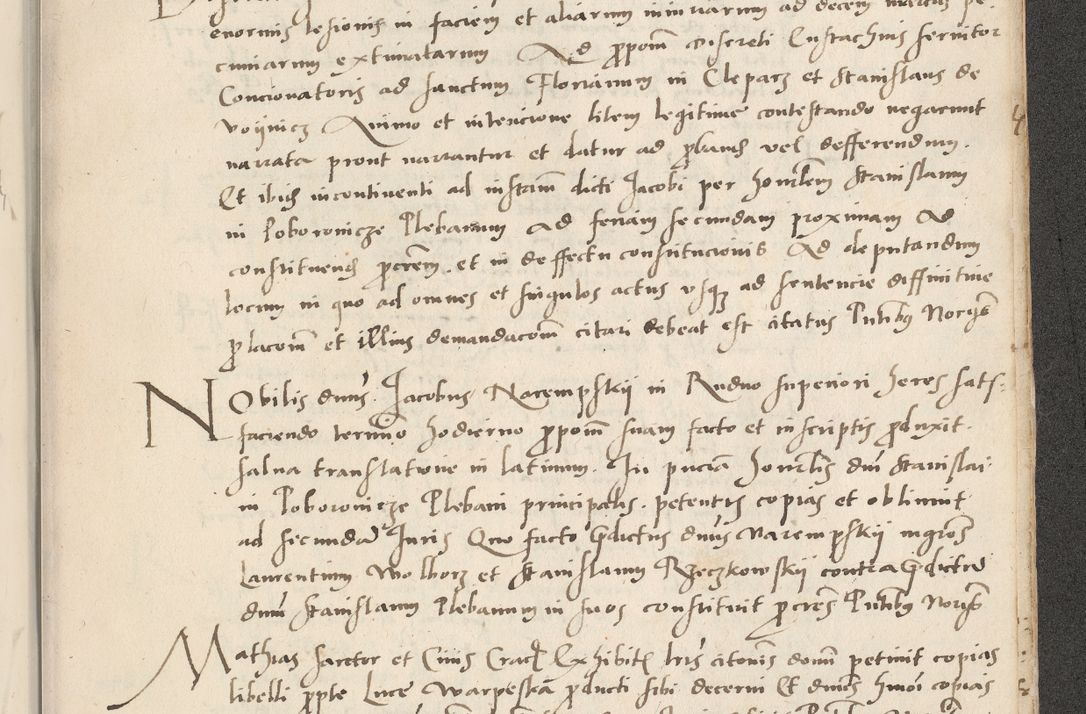 enormis lesionis in faciem et aliarum iniuriarum ad decem marcas pe-
cuniarum extimatarum Ad ꝓpom̄ discreti Eustachius servitor
Concionatoris ad sanctum Florianum in Clepar̄z et Stanislaus de
voijnicz Animo et intencione litem legitime contestando negarunt
narrata prout narrantur et datur ad ꝓband̄ vel defferendum.
Et ibid̄ incontinenti ad instam̄ dicti Jacobi per honrl̄em Stanislaum
in Poboronicze Plebanum ad feriam secundam proximam Ad
constituend̄ ꝓcrēm et in deffectu constitucionis Ad deputandum
locum in quo ad omnes et singulos actus usqȝ ad sentencie diffinitive
ꝓlacom̄ et illius demandacom̄ citari debeat est citatus Pntib̄ꝰ Nor
NObilis dnus̄ Jacobus Narempskij in Rudno superiori heres satis-
faciendo termīo hodierno ꝓpom̄ suam facto et in scriptis ꝓduxit
salva translatione in latinum. In pn̄cia honrl̄is dni Stanislai
in Poboronicze Plebani principalis. petentis copias et obtinuit
ad secundā Iuris Quo facto p̄dictus dnus̄ Narempskij
Laurentium Wolborz et Stanislaum Rzeczkowskij contra p̄dictū
dnum̄ Stanislaum Plebanum in suos constituit ꝓcrēs Pntib̄ꝰ Nor
Mathias sartor et Civis Crac̄ Exhibit̄ lrīs citorīis petiit copias
libelli ꝓpte Luce Warpeska ꝓducti sibi decerni Et copias